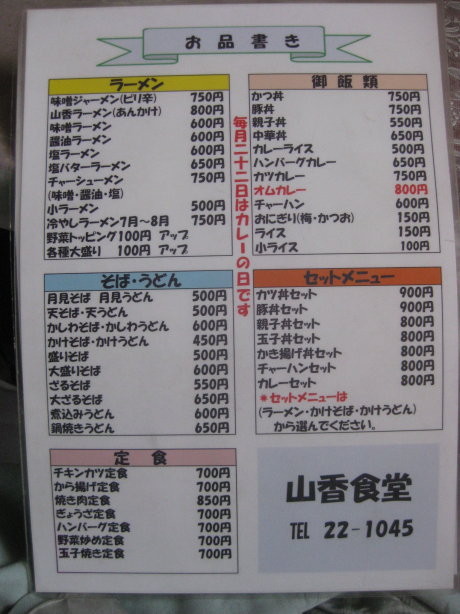 お品書き
ラーメン
味噌ジャーメン(ピリ辛) 750円
山香ラーメン(あんかけ) 800円
味噌ラーメン 600円
醤油ラーメン 600円
塩ラーメン 600円
塩バターラーメン 650円
チャーシューメン 750円
(味噌・醤油・塩)
小ラーメン 500円
冷やしラーメン7月～8月 750円
野菜トッピング100円 アップ
各種大盛り 100円 アップ
毎月二十二日はカレーの日です
御飯類
かつ丼 750円
豚丼 750円
親子丼 550円
中華丼 650円
カレーライス 500円
ハンバーグカレー 650円
カツカレー 750円
オムカレー 800円
チャーハン 600円
おにぎり(梅・かつお) 150円
ライス 150円
小ライス 100円
そば・うどん
月見そば 月見うどん 500円
天そば・天うどん 500円
かしわそば・かしわうどん 600円
かけそば・かけうどん 450円
盛りそば 500円
大盛りそば 600円
ざるそば 550円
大ざるそば 650円
煮込みうどん 600円
鍋焼きうどん 650円
セットメニュー
カツ丼セット 900円
豚丼セット 900円
親子丼セット 800円
玉子丼セット 800円
かき揚げ丼セット 800円
チャーハンセット 800円
カレーセット 800円
*セットメニューは
(ラーメン・かけそば・かけうどん)
から選んでください。
定食
チキンカツ定食 700円
から揚げ定食 700円
焼き肉定食 850円
ぎょうざ定食 700円
ハンバーグ定食 700円
野菜炒め定食 700円
玉子焼き定食 700円
山香食堂
TEL 22-1045